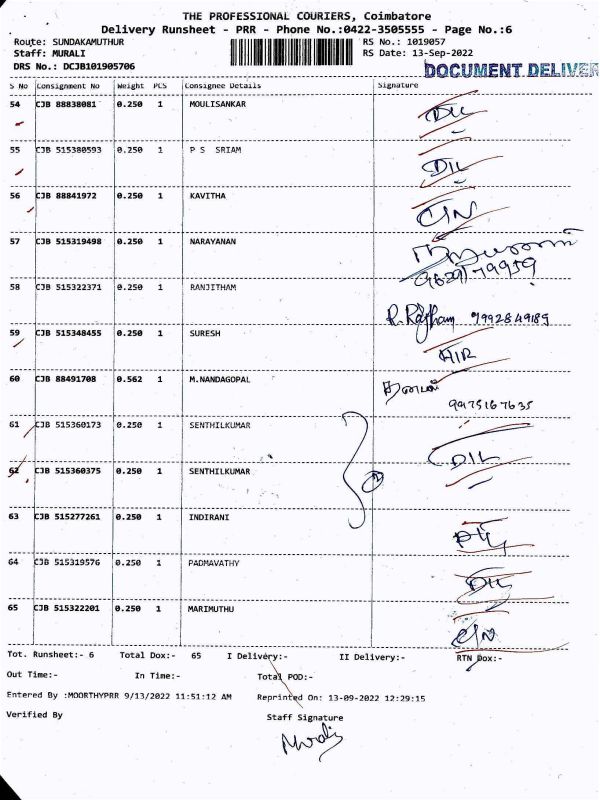 THE PROFESSIONAL COURIERS, Coimbatore
Delivery Runsheet - PRR - Phone No.:0422-3505555 - Page No.:6
Route: SUNDAKAMUTHUR RS No.: 1019057
Staff: MURALI RS Date: 13-Sep-2022
DRS No.: DCJB101905706 DOCUMENT DELIVER
S No Consignment No Weight PCS Consignee Details Signature
54 CJB 88838081 0.250 1 MOULISANKAR DIL
55 CJB 515380593 0.250 1 P S SRIAM DIL
56 CJB 88841972 0.250 1 KAVITHA C/N
57 CJB 515319498 0.250 1 NARAYANAN
58 CJB 515322371 0.250 1 RANJITHAM 9992849189
59 CJB 515348455 0.250 1 SURESH AIR
60 CJB 88491708 0.562 1 M.NANDAGOPAL
9975167635
61 CJB 515360173 0.250 1 SENTHILKUMAR
DIL
62 CJB 515360375 0.250 1 SENTHILKUMAR 2
63 CJB 515277261 0.250 1 INDIRANI
64 CJB 515319576 0.250 1 PADMAVATHY DIL
65 CJB 515322201 0.250 1 MARIMUTHU C/N
Tot. Runsheet:- 6 Total Dox:- 65 I Delivery:- II Delivery:- RTN Dox:-
Out Time:- In Time:- Total POD:-
Entered By :MOORTHYPRR 9/13/2022 11:51:12 AM Reprinted On: 13-09-2022 12:29:15
Verified By Staff Signature
Murali